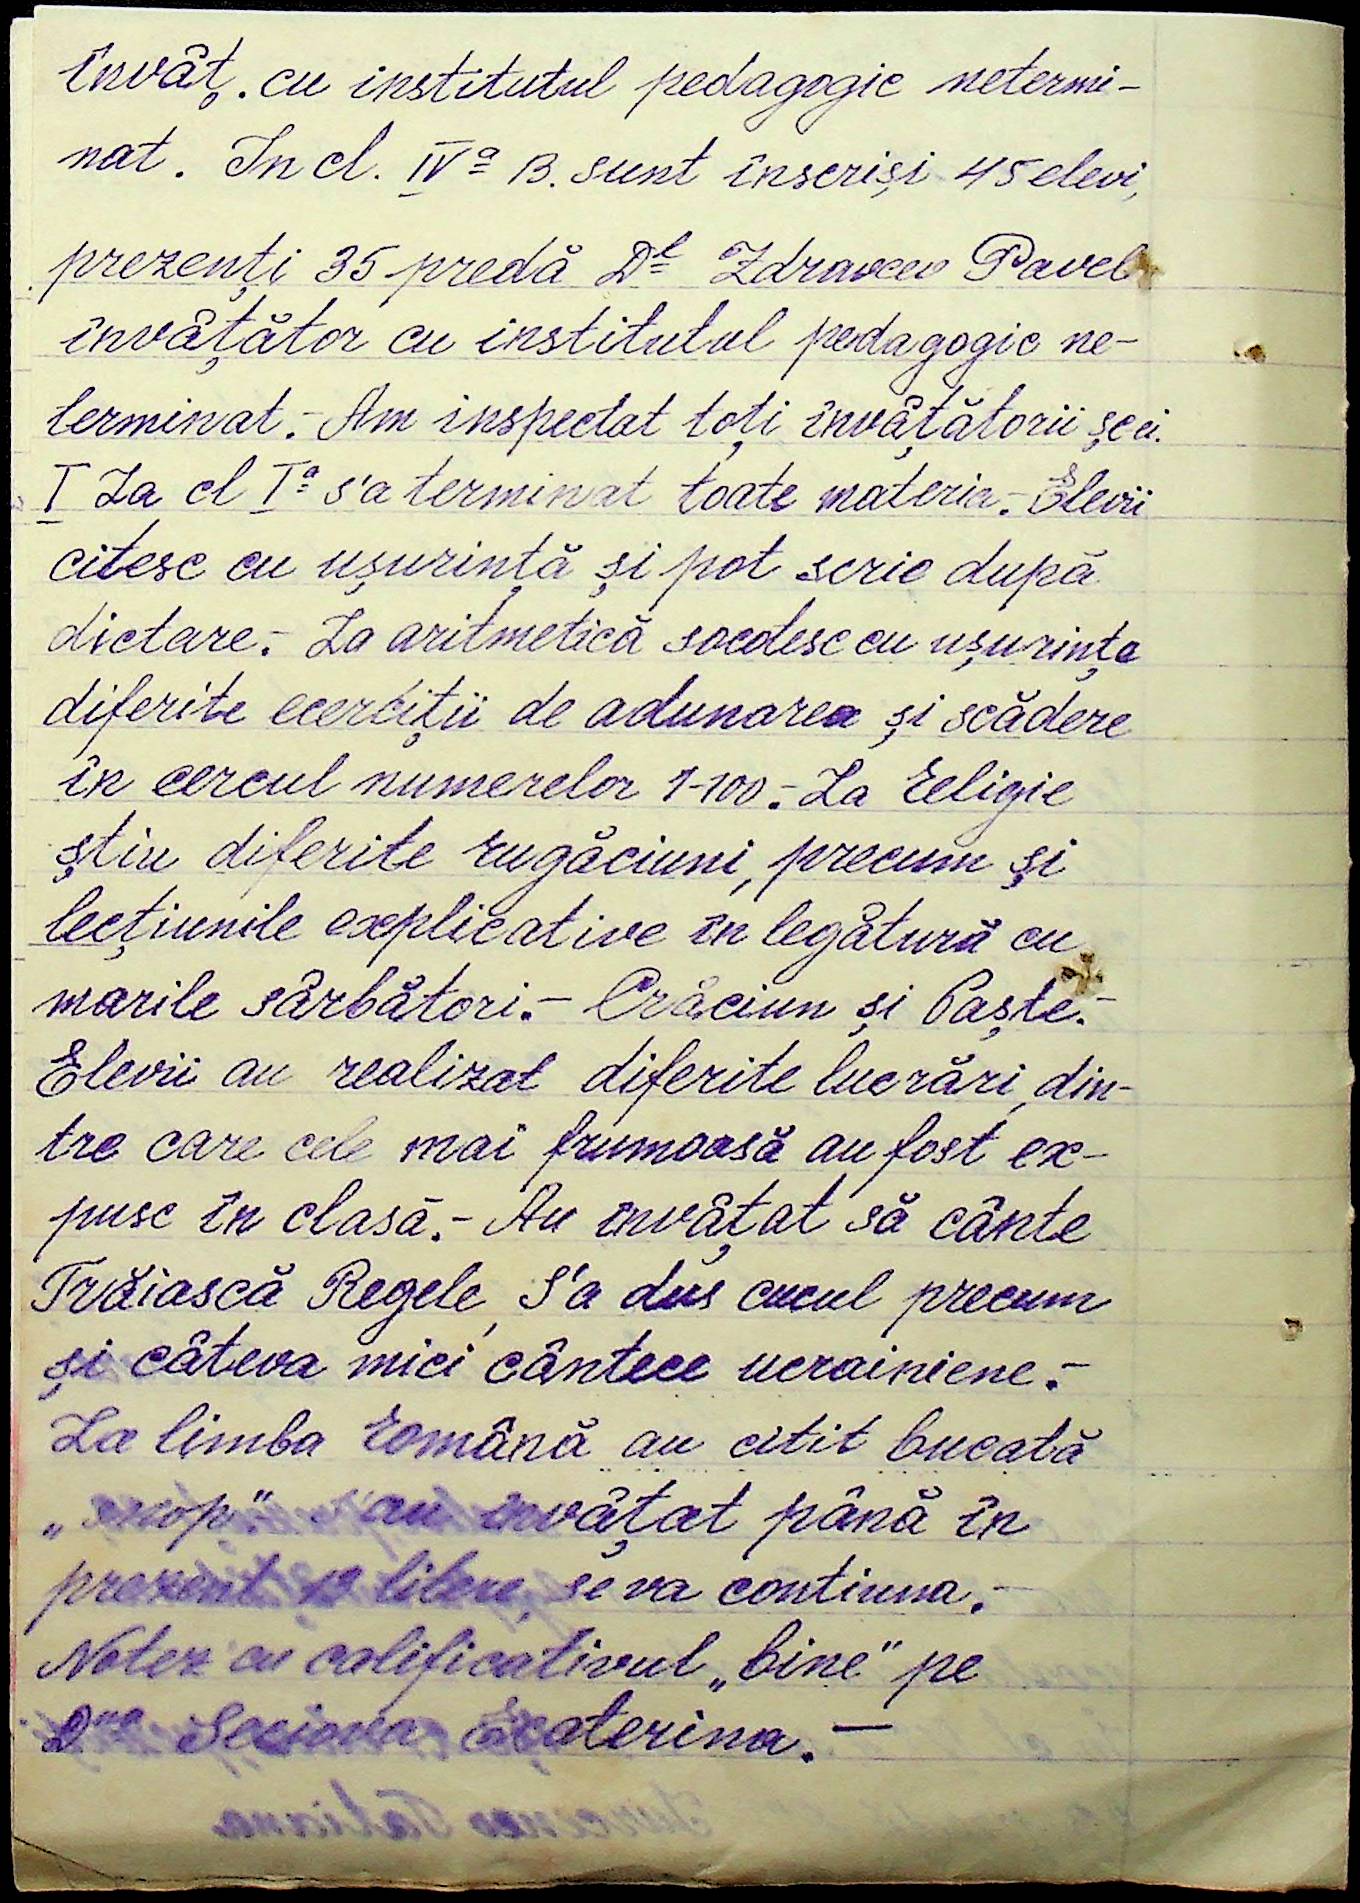 învâț. cu institutul pedagogic netermi-
nat. In cl. IVª B. sunt înscriși 45 elevi,
prezenți 35 predă Dl Zdravcev Pavel
învâțător cu institutul pedagogic ne-
terminat.- Am inspectat toți învâțătorii șc ei.
I La cl Iª s'a terminat toate materia.- Elevii
citesc cu ușurință și pot scrie după
dictare.- La aritmetică socotesc cu ușurința
diferite ecerciții de adunarea și scădere
în cercul numerelor 1-100.- La religie
știu diferite rugăciuni, precum și
lecțiunile explicative în legătură cu
marile sârbători.- Crăciun și Paște.-
Elevii au realizat diferite lucrări, din-
tre care cele mai frumoasă au fost ex-
puse în clasă.- Au învâțat să cânte
Trăiască Regele, S'a dus cucul precum
și câteva mici cântece ucrainiene.-
La limba română au citit bucată
au învâțat până în
prezent 12 litere, se va continua.-
Notez cu calificativul „bine" pe
Dna Ecaterina.-